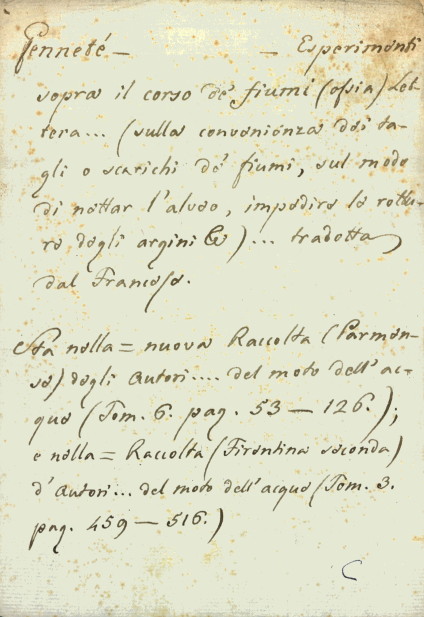 Genneté — — Esperimenti
sopra il corso de' fiumi (ossia) Let-
tera... (sulla convenienza dei ta-
gli o scarichi de' fiumi, sul modo
di nettar l'alveo, impedire le rottu-
re degli argini &c) ... tradotta
dal Francese.
Sta nella = nuova Raccolta (Parmen-
se) degli autori .... del moto dell'ac-
que (Tom. 6. pag. 53 — 126.);
e nella = Raccolta (Fiorentina seconda)
d'autori ... del moto dell'acque (Tom. 3.
pag. 459 — 516.)
C